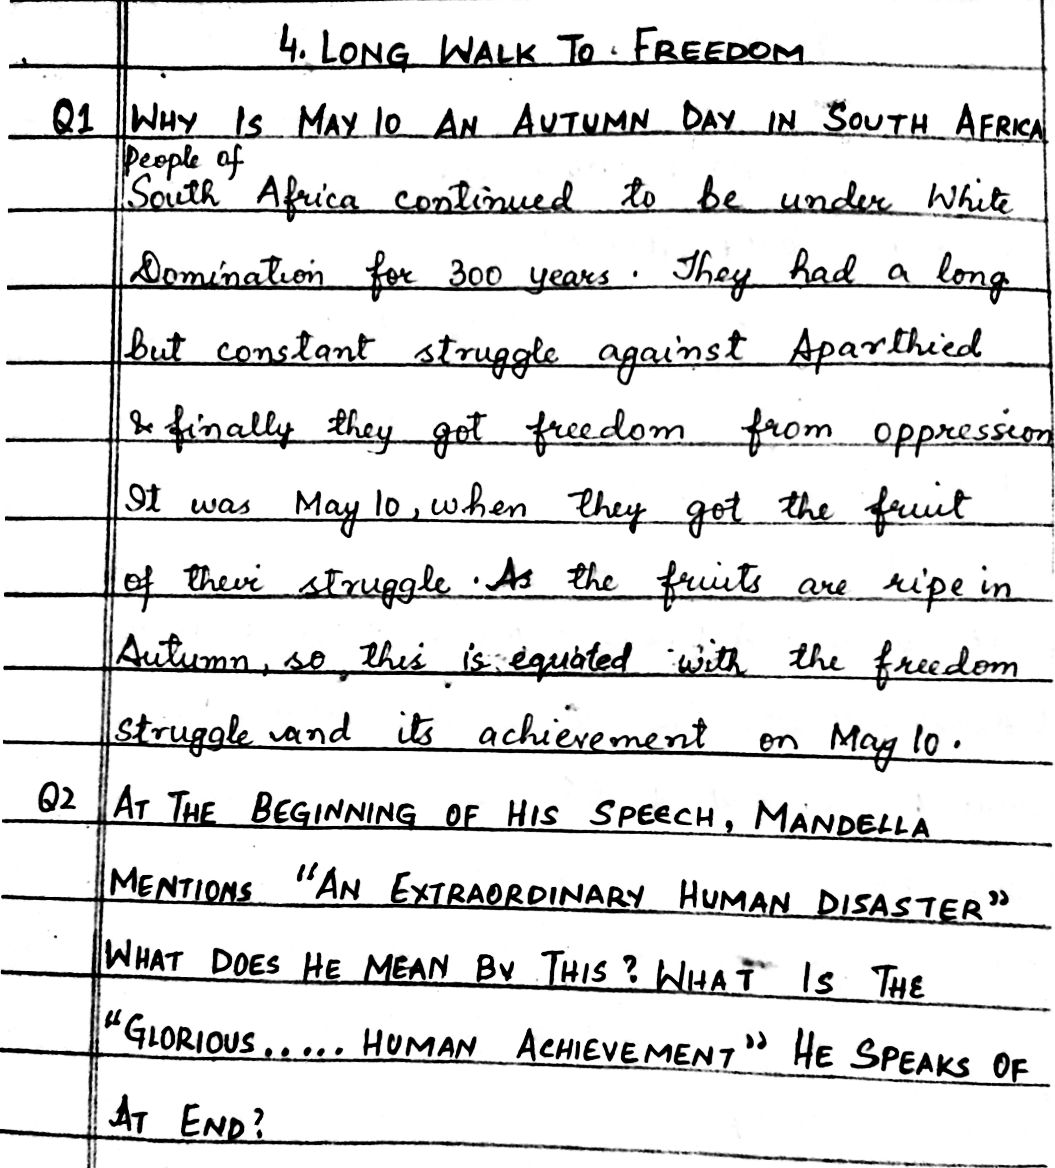 4. LONG WALK TO FREEDOM
Q1 WHY IS MAY 10 AN AUTUMN DAY IN SOUTH AFRICA
People of
South Africa continued to be under White
Domination for 300 years. They had a long
but constant struggle against Aparthied
& finally they got freedom from oppression
It was May 10, when they got the fruit
of their struggle. As the fruits are ripe in
Autumn, so, this is equated with the freedom
struggle and its achievement on May 10.
Q2 AT THE BEGINNING OF HIS SPEECH, MANDELLA
MENTIONS "AN EXTRAORDINARY HUMAN DISASTER"
WHAT DOES HE MEAN BY THIS? WHAT IS THE
"GLORIOUS..... HUMAN ACHIEVEMENT" HE SPEAKS OF
AT END?